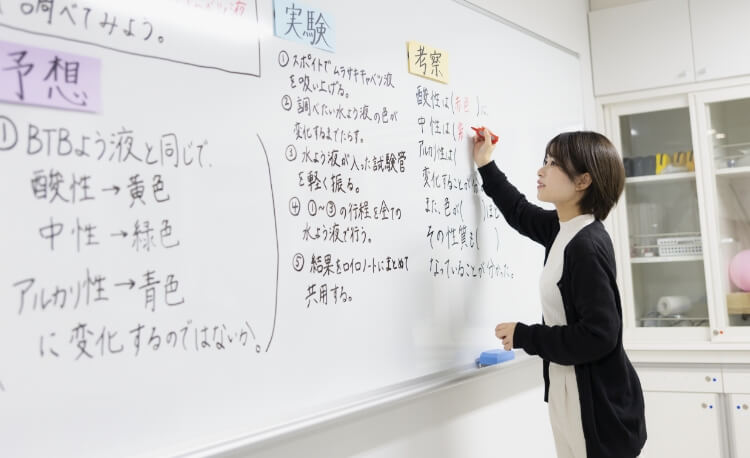 調べてみよう。
予想
① BTBよう液と同じで、
酸性→黄色
中性→緑色
アルカリ性→青色
に変化するのではないか。
実験
① スポイトでムラサキキャベツ液
を吸い上げる。
② 調べたい水よう液の色が
変化するまでたらす。
③ 水よう液が入った試験管
を軽く振る。
④ ①〜③の行程を全ての
水よう液で行う。
⑤ 結果をロイロノートにまとめて
共用する。
考察
酸性は(赤色 )に
中性は(紫
アルカリ性は(
変化することが
また、色が( )ほど
その性質も( )
なっていることが分かった。